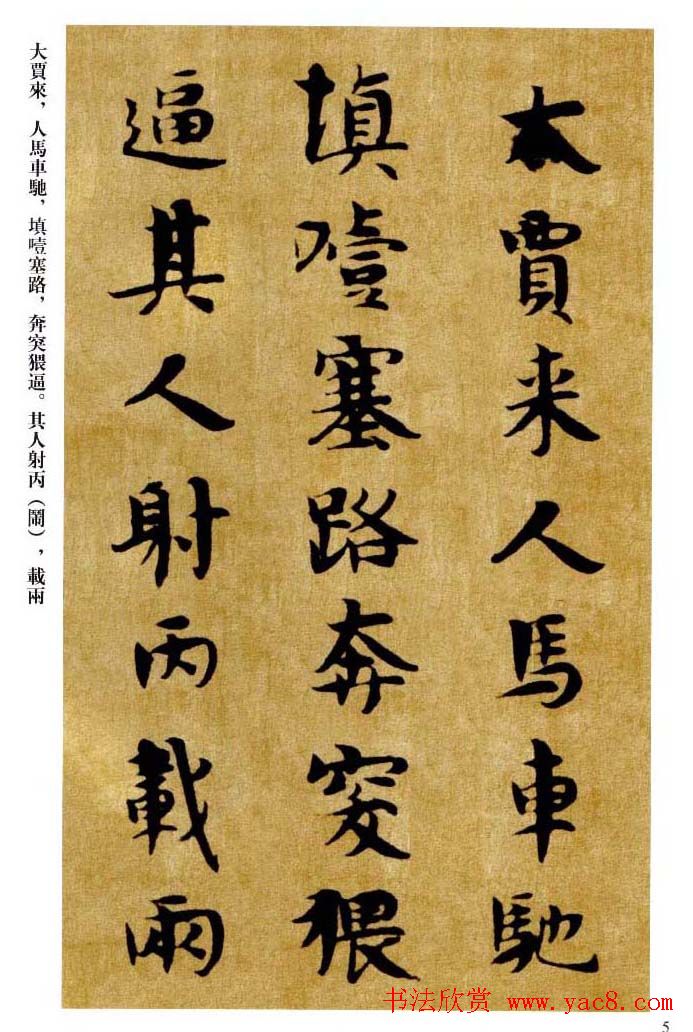 太賈来人馬車馳
填噎塞路奔突猥
逼其人射丙載兩
大賈來，人馬車馳，填噎塞路，奔突猥逼。其人射丙（鬧），載兩
书法欣赏 www.yac8.com
5